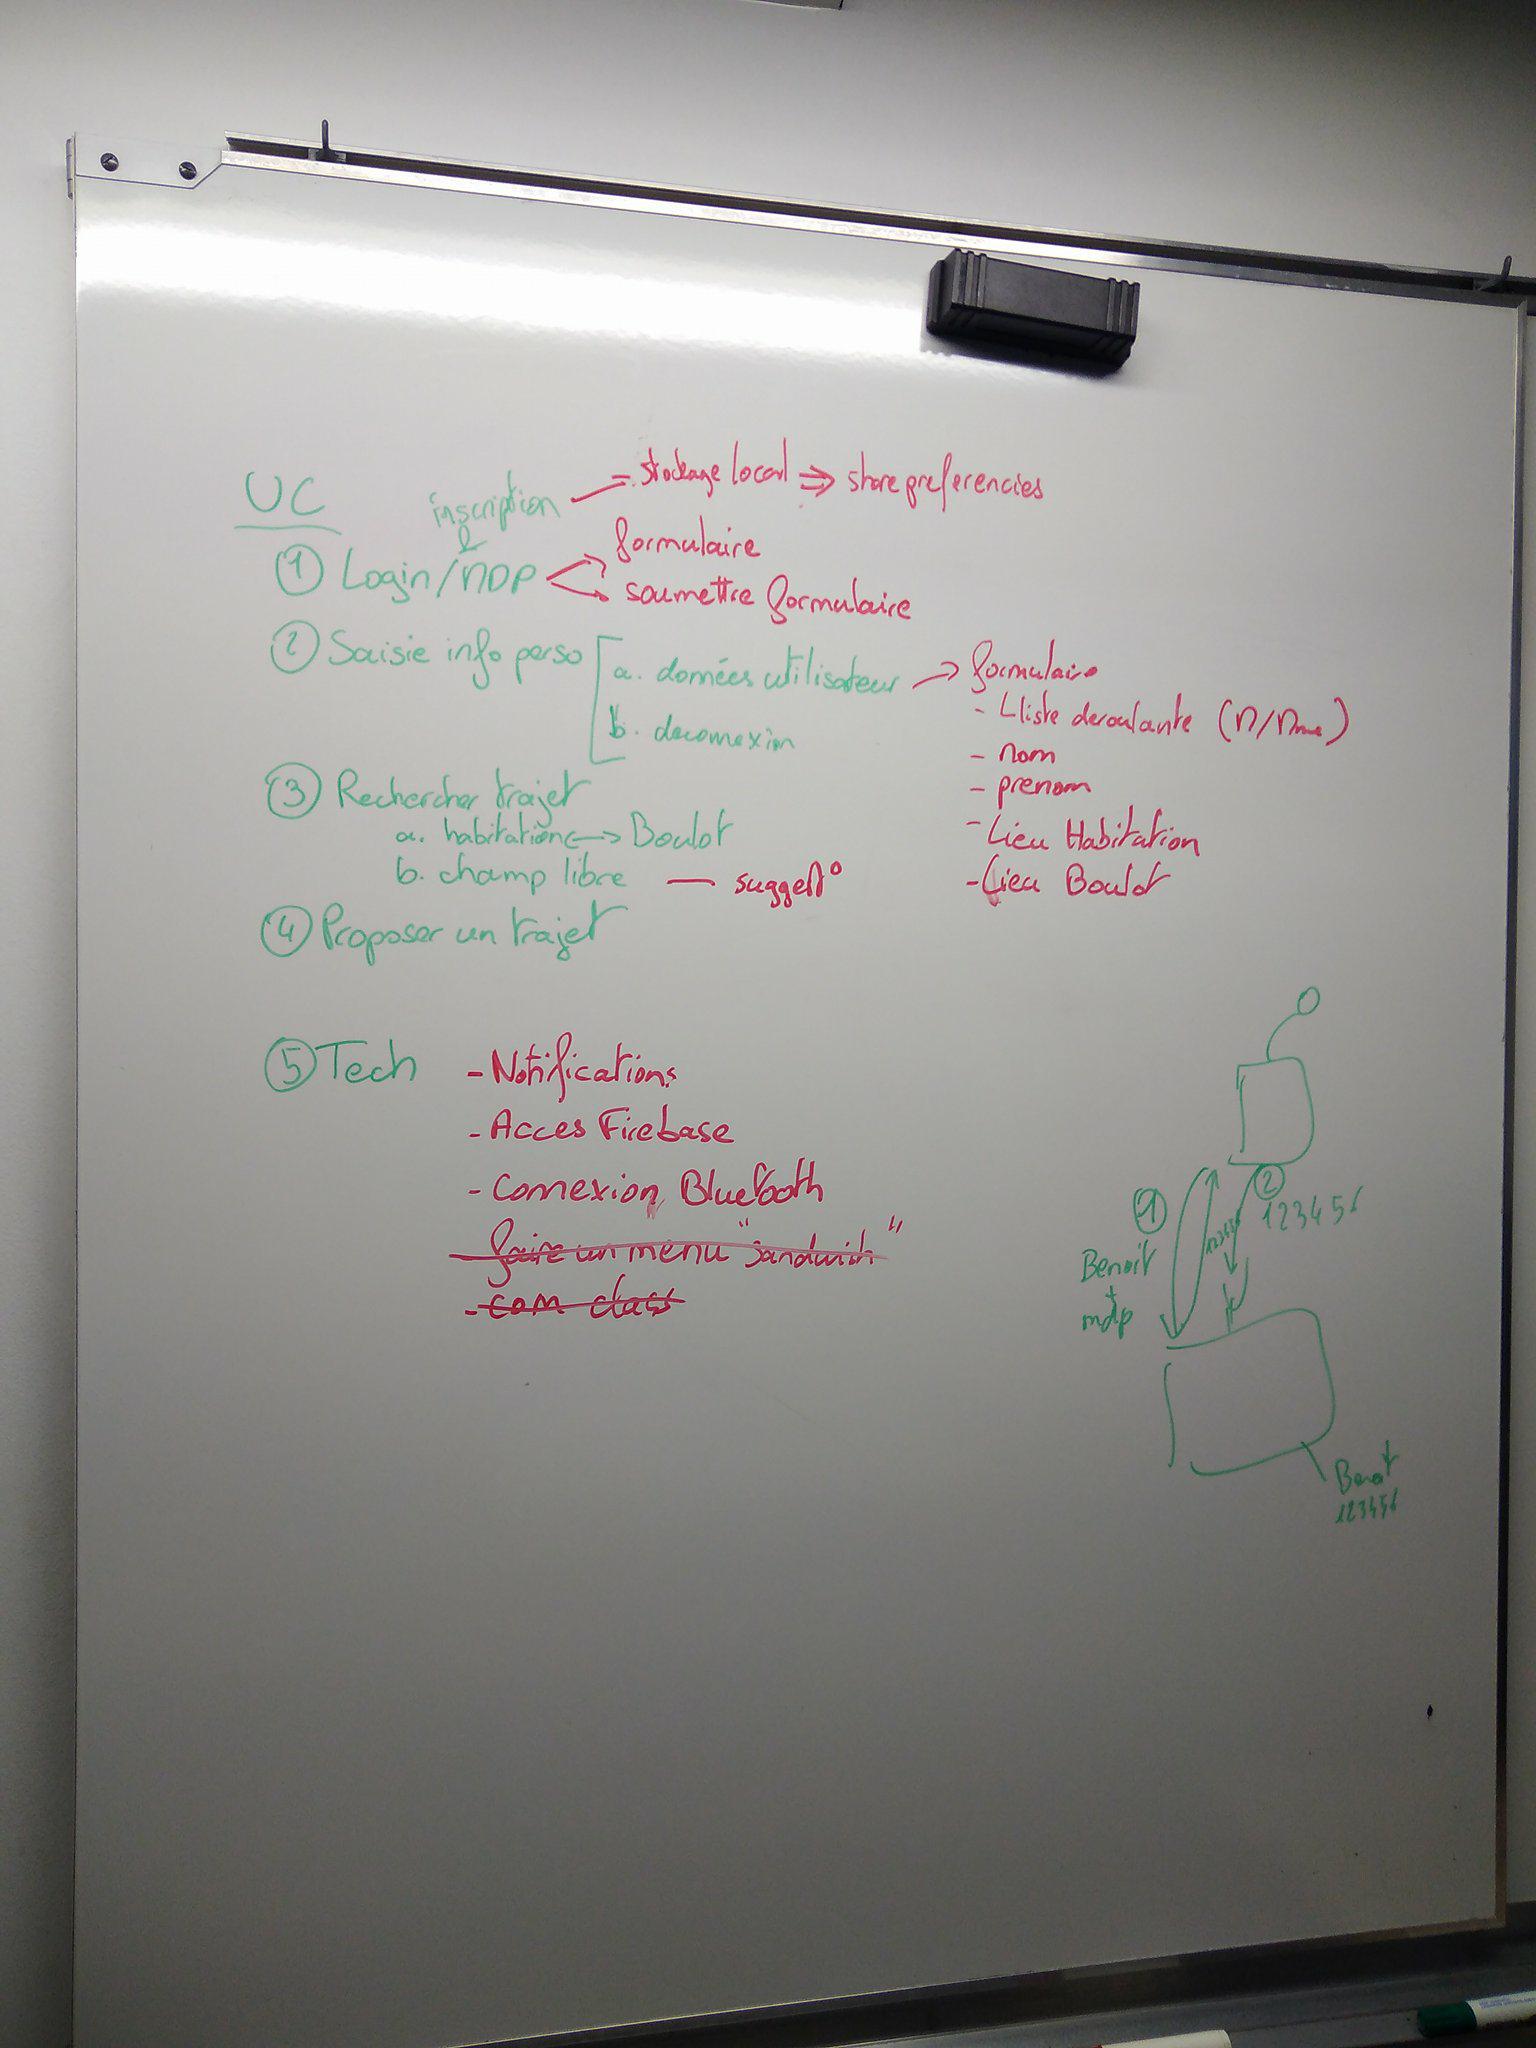 UC
inscription = stockage local => share preferencies
&
① Login/MDP
formulaire
soumettre formulaire
② Saisie info perso
a. données utilisateur -> formulaire
b. deconnexion
- Lliste deroulante (M/Mme)
- nom
- prenom
- Lieu Habitation
- Lieu Boulot
③ Rechercher trajet
a. habitation <-> Boulot
b. champ libre — suggest°
④ Proposer un trajet
⑤ Tech
- Notifications
- Acces Firebase
- Connexion Bluetooth
- faire un menu "sandwish"
- com class
①
Benoit
+
mdp
②
123456
123456
Benoit
123456